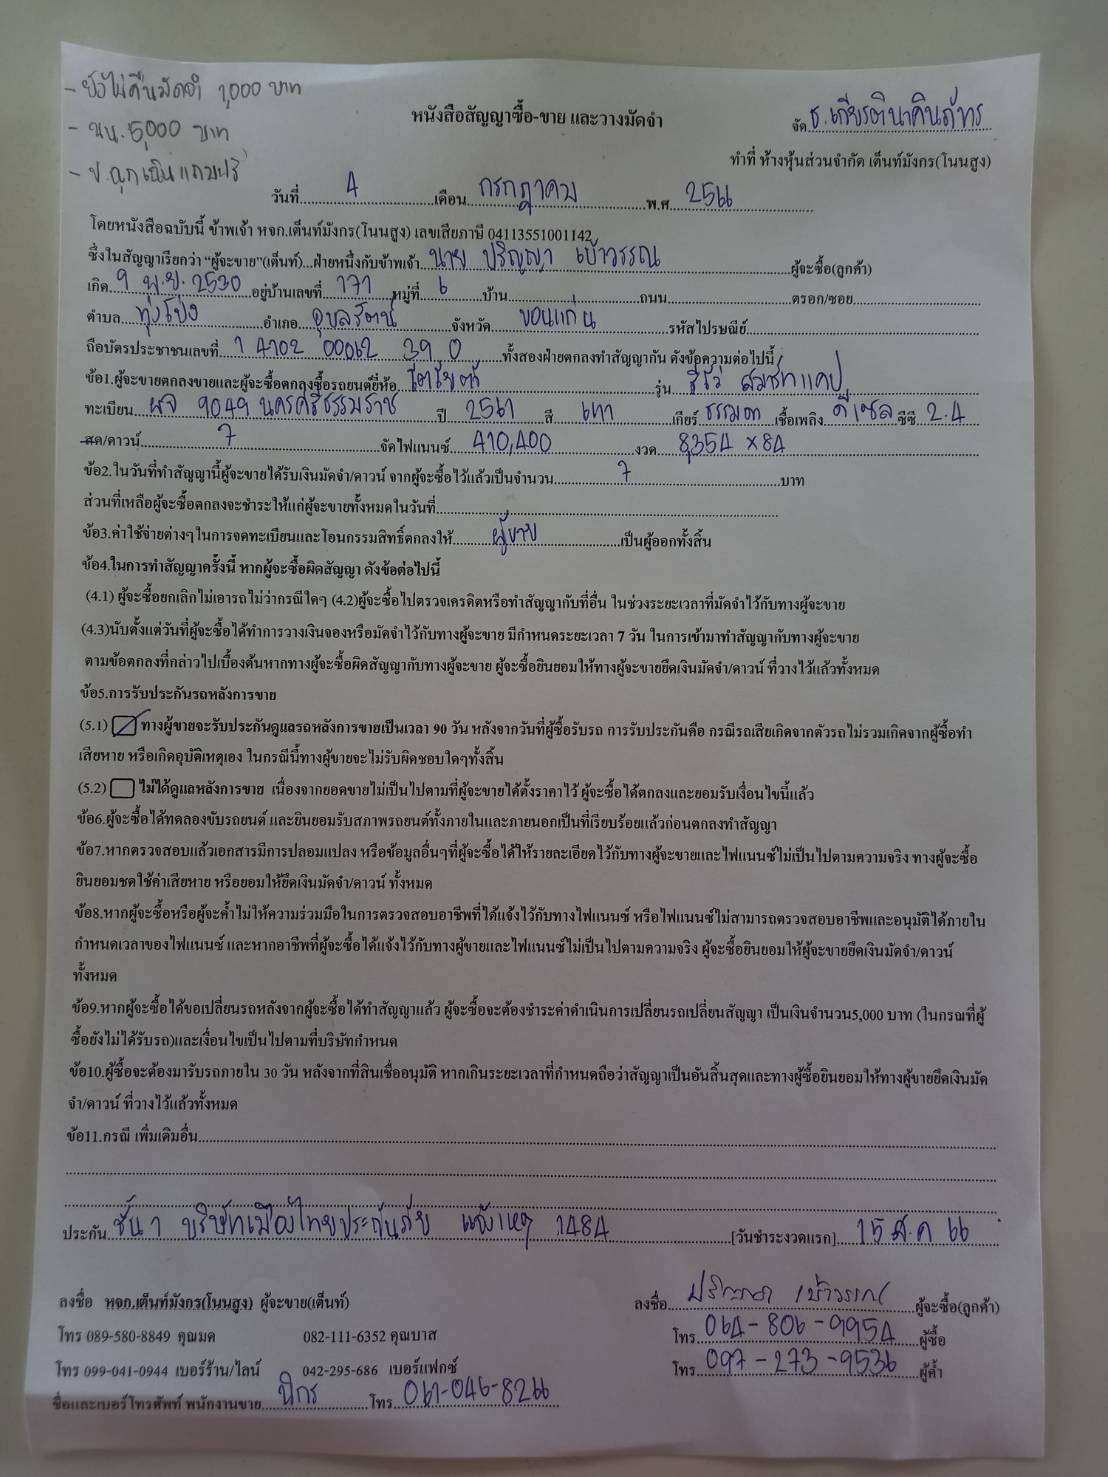 - ยังไม่คืนมัดจำ 1,000 บาท
- นน. 5,000 บาท
- ป.ฉุกเฉินแถมฟรี
หนังสือสัญญาซื้อ-ขาย และวางมัดจำ
จัด ธ.เกียรตินาคินภัทร
ทำที่ ห้างหุ้นส่วนจำกัด เต็นท์มังกร(โนนสูง)
วันที่ 4 เดือน กรกฎาคม พ.ศ 2566
โดยหนังสือฉบับนี้ ข้าพเจ้า หจก.เต็นท์มังกร(โนนสูง) เลขเสียภาษี 04113551001142
ซึ่งในสัญญาเรียกว่า "ผู้จะขาย"(เต็นท์)...ฝ่ายหนึ่งกับข้าพเจ้า นาย ปริญญา เบ้าวรรณ ผู้จะซื้อ(ลูกค้า)
เกิด 9 พ.ย. 2530 อยู่บ้านเลขที่ 171 หมู่ที่ 6 บ้าน ถนน ตรอก/ซอย
ตำบล ทุ่งโป่ง อำเภอ อุบลรัตน์ จังหวัด ขอนแก่น รหัสไปรษณีย์
ถือบัตรประชาชนเลขที่ 1 4102 00062 39 0 ทั้งสองฝ่ายตกลงทำสัญญากัน ดังข้อความต่อไปนี้
ข้อ1.ผู้จะขายตกลงขายและผู้จะซื้อตกลงซื้อรถยนต์ยี่ห้อ โตโยต้า รุ่น รีโว่ สมาร์ทแคป
ทะเบียน ผจ 9049 นครศรีธรรมราช ปี 2561 สี เทา เกียร์ ธรรมดา เชื้อเพลิง ดีเซล ซีซี 2.4
สด/ดาวน์ 7 จัดไฟแนนซ์ 410,400 งวด 8,354 x 84
ข้อ2.ในวันที่ทำสัญญานี้ผู้จะขายได้รับเงินมัดจำ/ดาวน์ จากผู้จะซื้อไว้แล้วเป็นจำนวน 7 บาท
ส่วนที่เหลือผู้จะซื้อตกลงจะชำระให้แก่ผู้จะขายทั้งหมดในวันที่
ข้อ3.ค่าใช้จ่ายต่างๆในการจดทะเบียนและโอนกรรมสิทธิ์ตกลงให้ ผู้ขาย เป็นผู้ออกทั้งสิ้น
ข้อ4.ในการทำสัญญาครั้งนี้ หากผู้จะซื้อผิดสัญญา ดังข้อต่อไปนี้
(4.1) ผู้จะซื้อยกเลิกไม่เอารถไม่ว่ากรณีใดๆ (4.2)ผู้จะซื้อไปตรวจเครดิตหรือทำสัญญากับที่อื่น ในช่วงระยะเวลาที่มัดจำไว้กับทางผู้จะขาย
(4.3)นับตั้งแต่วันที่ผู้จะซื้อได้ทำการวางเงินจองหรือมัดจำไว้กับทางผู้จะขาย มีกำหนดระยะเวลา 7 วัน ในการเข้ามาทำสัญญากับทางผู้จะขาย
ตามข้อตกลงที่กล่าวไปเบื้องต้นหากทางผู้จะซื้อผิดสัญญากับทางผู้จะขาย ผู้จะซื้อยินยอมให้ทางผู้จะขายยึดเงินมัดจำ/ดาวน์ ที่วางไว้แล้วทั้งหมด
ข้อ5.การรับประกันรถหลังการขาย
(5.1) ทางผู้ขายจะรับประกันดูแลรถหลังการขายเป็นเวลา 90 วัน หลังจากวันที่ผู้ซื้อรับรถ การรับประกันคือ กรณีรถเสียเกิดจากตัวรถไม่รวมเกิดจากผู้ซื้อทำ
เสียหาย หรือเกิดอุบัติเหตุเอง ในกรณีนี้ทางผู้ขายจะไม่รับผิดชอบใดๆทั้งสิ้น
(5.2) ไม่ได้ดูแลหลังการขาย เนื่องจากยอดขายไม่เป็นไปตามที่ผู้จะขายได้ตั้งราคาไว้ ผู้จะซื้อได้ตกลงและยอมรับเงื่อนไขนี้แล้ว
ข้อ6.ผู้จะซื้อได้ทดลองขับรถยนต์ และยินยอมรับสภาพรถยนต์ทั้งภายในและภายนอกเป็นที่เรียบร้อยแล้วก่อนตกลงทำสัญญา
ข้อ7.หากตรวจสอบแล้วเอกสารมีการปลอมแปลง หรือข้อมูลอื่นๆที่ผู้จะซื้อได้ให้รายละเอียดไว้กับทางผู้จะขายและไฟแนนซ์ไม่เป็นไปตามความจริง ทางผู้จะซื้อ
ยินยอมชดใช้ค่าเสียหาย หรือยอมให้ยึดเงินมัดจำ/ดาวน์ ทั้งหมด
ข้อ8.หากผู้จะซื้อหรือผู้จะค้ำไม่ให้ความร่วมมือในการตรวจสอบอาชีพที่ได้แจ้งไว้กับทางไฟแนนซ์ หรือไฟแนนซ์ไม่สามารถตรวจสอบอาชีพและอนุมัติได้ภายใน
กำหนดเวลาของไฟแนนซ์ และหากอาชีพที่ผู้จะซื้อได้แจ้งไว้กับทางผู้ขายและไฟแนนซ์ไม่เป็นไปตามความจริง ผู้จะซื้อยินยอมให้ผู้จะขายยึดเงินมัดจำ/ดาวน์
ทั้งหมด
ข้อ9.หากผู้จะซื้อได้ขอเปลี่ยนรถหลังจากผู้จะซื้อได้ทำสัญญาแล้ว ผู้จะซื้อจะต้องชำระค่าดำเนินการเปลี่ยนรถเปลี่ยนสัญญา เป็นเงินจำนวน5,000 บาท (ในกรณที่ผู้
ซื้อยังไม่ได้รับรถ)และเงื่อนไขเป็นไปตามที่บริษัทกำหนด
ข้อ10.ผู้ซื้อจะต้องมารับรถภายใน 30 วัน หลังจากที่สินเชื่ออนุมัติ หากเกินระยะเวลาที่กำหนดถือว่าสัญญาเป็นอันสิ้นสุดและทางผู้ซื้อยินยอมให้ทางผู้ขายยึดเงินมัด
จำ/ดาวน์ ที่วางไว้แล้วทั้งหมด
ข้อ11.กรณี เพิ่มเติมอื่น
ประกัน ชั้น 1 บริษัทเมืองไทยประกันภัย แจ้งเหตุ 1484 [วันชำระงวดแรก] 15 ส.ค 66
ลงชื่อ หจก.เต็นท์มังกร(โนนสูง) ผู้จะขาย(เต็นท์)
ลงชื่อ ปริญญา เบ้าวรรณ ผู้จะซื้อ(ลูกค้า)
โทร 089-580-8849 คุณมด 082-111-6352 คุณบาส
โทร 064-806-9954 ผู้ซื้อ
โทร 099-041-0944 เบอร์ร้าน/ไลน์ 042-295-686 เบอร์แฟกซ์
โทร 097-273-9536 ผู้ค้ำ
ชื่อและเบอร์โทรศัพท์ พนักงานขาย นิกร โทร 061-046-8266